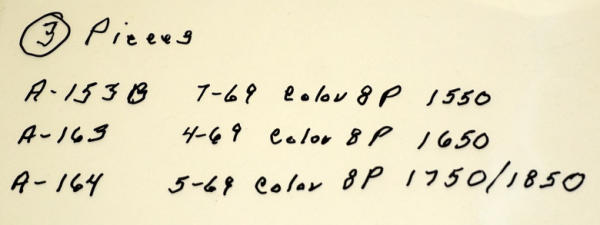 ③ Pieces
A-153B 7-69 Color 8P 1550
A-163 4-69 Color 8P 1650
A-164 5-69 Color 8P 1750/1850